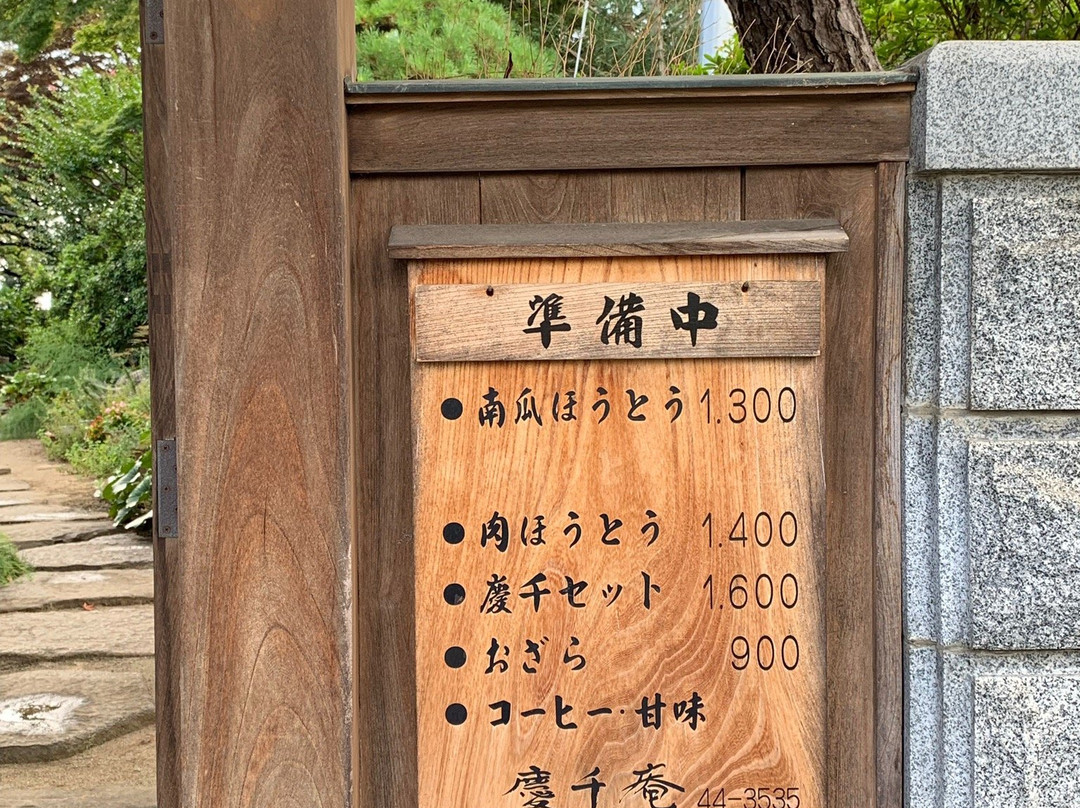 準備中
●南瓜ほうとう 1.300
●肉ほうとう 1.400
●慶千セット 1.600
●おざら 900
●コーヒー·甘味
慶千庵 44-3535